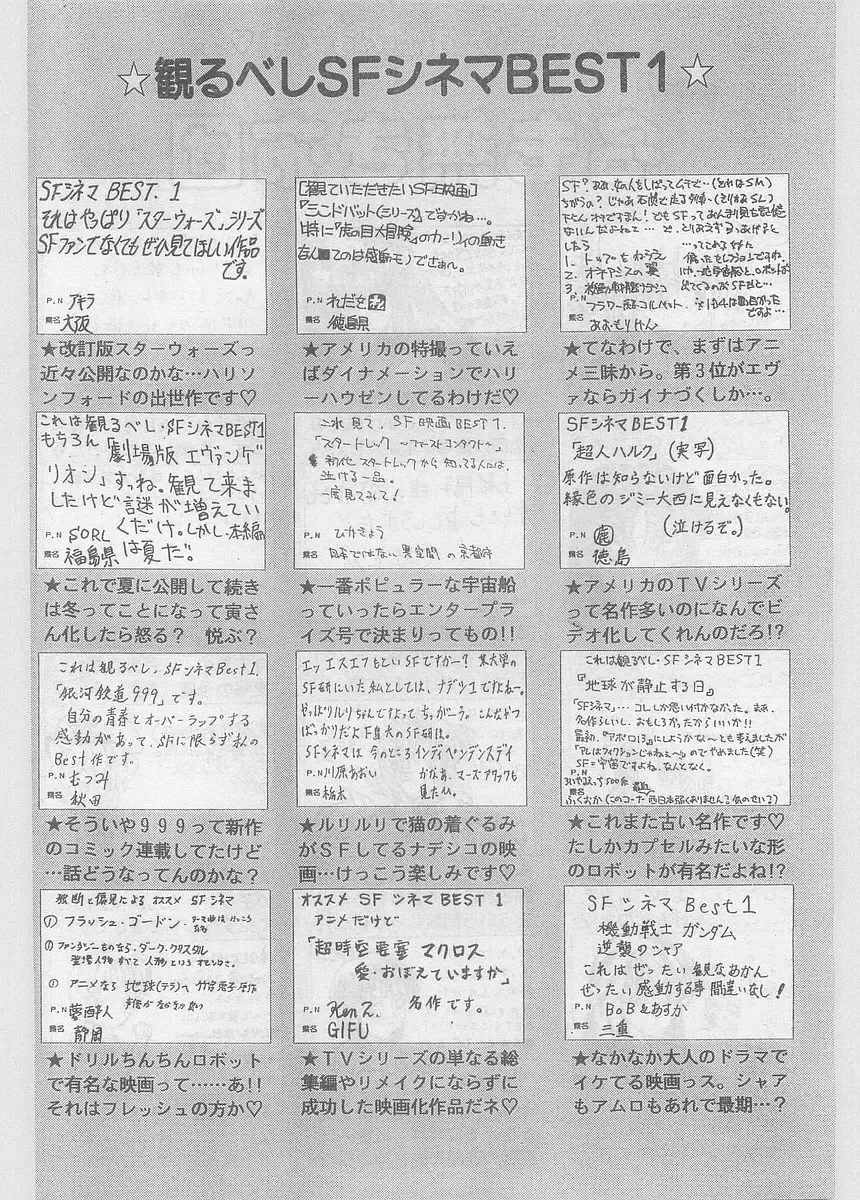 ☆観るべしSFシネマBEST1☆
SFシネマ BEST. 1
それはやっぱり「スターウォーズ」シリーズ
SFファンでなくてもぜひ見てほしい作品
です。
P.N アキラ
県名 大阪
★改訂版スターウォーズっ
近々公開なのかな…ハリソ
ンフォードの出世作です♡
[観ていただきたいSF映画]
『シンドバット(シリーズ)』ですかね…。
特に『虎の目大冒険』のカーリィの動き
は感動モノでさぁ〜。
P.N れだせ
県名 徳島県
★アメリカの特撮っていえ
ばダイナメーションでハリ
ーハウゼンしてるわけだ♡
SF?
したら
1. トップをねらえ
2. オネアミスの翼
3. 機動戦艦ナデシコ
P.N フラワー
県名 あおもりけん
★てなわけで、まずはアニ
メ三昧から。第3位がエヴ
ァならガイナづくしか…。
これは観るべし・SFシネマBEST1
もちろん「劇場版 エヴァンゲ
リオン」すっね。観て来ま
したけど謎が増えてい
くだけ。しかし、本編
は夏だ。
P.N SORL
県名 福島県
★これで夏に公開して続き
は冬ってことになって寅さ
ん化したら怒る? 悦ぶ?
これ見て、SF映画BEST1.
「スタートレック 〜ファーストコンタクト〜」
初代スタートレックから知ってる人には、
泣ける一品。
一度見てみて!
P.N ひかきょう
県名 日本ではない異空間の京都府
★一番ポピュラーな宇宙船
っていったらエンタープラ
イズ号で決まりってもの!!
SFシネマBEST1
「超人ハルク」(実写)
原作は知らないけど面白かった。
緑色のジミー大西に見えなくもない。
(泣けるぞ。)
P.N
県名 徳島
★アメリカのTVシリーズ
って名作多いのになんでビ
デオ化してくれんのだろ!?
これは観るべし、SFシネマBest1.
「銀河鉄道999」です。
自分の青春とオーバーラップする
感動があって、SFに限らず私の
Best作です。
P.N むつみ
県名 秋田
★そういや999って新作
のコミック連載してたけど
…話どうなってんのかな?
エッ エスエフもといSFですかー? 某大学の
SF研にいた私としては、ナデシコですよねー。
やっぱりルリちゃんですよってちっがーう。こんなやつ
ばっかりだよF良大のSF研は。
SFシネマは今のところインディペンデンスデイ
かなぁ。マーズアタックも
見たい。
P.N 川原あおい
県名 栃木
★ルリルリで猫の着ぐるみ
がSFしてるナデシコの映
画…けっこう楽しみです♡
これは観るべし・SFシネマBEST1
『地球が静止する日』
「SFシネマ」…コレしか思い付かなかった。まぁ、
名作らしいし、おもしろかったからいいか!!
最初、『アポロ13』にしようかな〜とも考えましたが
「アレはフィクションじゃねぇ〜」のでやめました(笑)
SF=宇宙ですよね、なんとなく。
P.N
県名 ふくおか
★これまた古い名作です♡
たしかカプセルみたいな形
のロボットが有名だよね!?
独断と偏見による オススメ SFシネマ
① フラッシュ・ゴードン・テーマ曲はけっこう有名
① ファンタジーものなら・ダーク・クリスタル
登場人物すべて人形というすごさ。
① アニメなら 地球(テラ)へ 竹宮恵子原作
P.N 夢酔人
県名 静岡
★ドリルちんちんロボット
で有名な映画って……あ!!
それはフレッシュの方か♡
オススメ SFシネマBEST 1
アニメだけど
「超時空要塞 マクロス
愛・おぼえていますか」
名作です。
P.N Ken Z.
県名 GIFU
★TVシリーズの単なる総
集編やリメイクにならずに
成功した映画化作品だネ♡
SFシネマBest1
機動戦士 ガンダム
逆襲のシャア
これはぜったい観なあかん
ぜったい感動する事間違いなし!
P.N BOBとあすか
県名 三重
★なかなか大人のドラマで
イケてる映画っス。シャア
もアムロもあれで最期…?